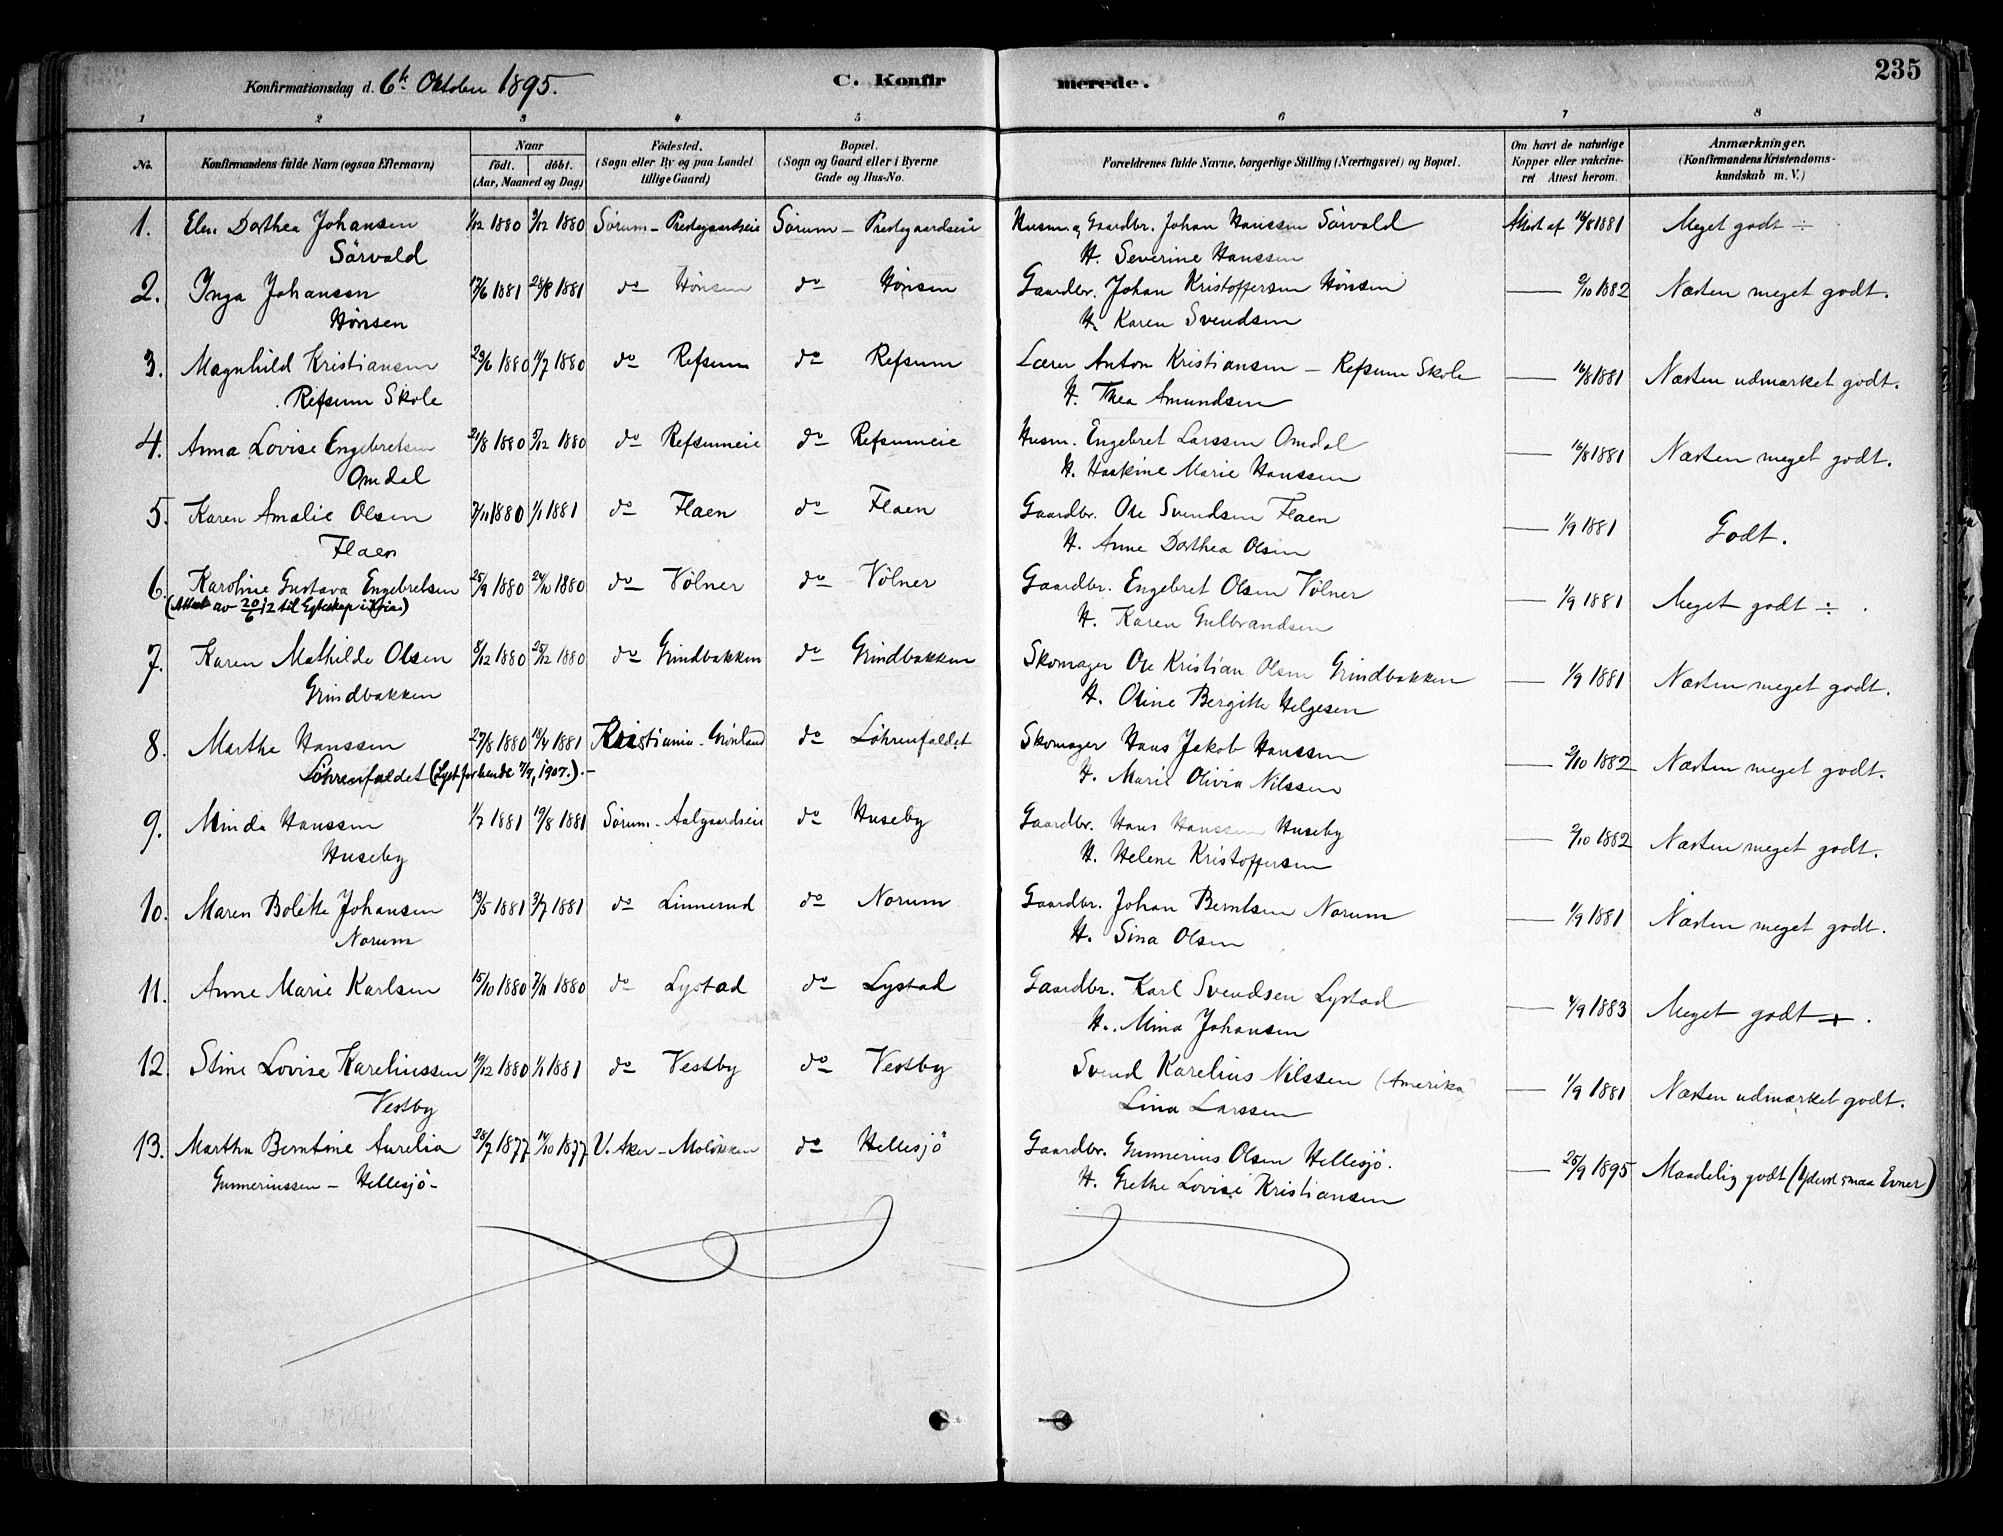 Konfirmationsdag d. 6te Oktober 1895.
C. Konfirmerede.
235
1 2 3 4 5 6 7 8
No. Konfirmandens fulde Navn (ogsaa Efternavn) Naar født. døbt. (Aar, Maaned og Dag) Fødested. (Sogn eller By og paa Landet tillige Gaard) Bopæl. (Sogn og Gaard eller i Byerne Gade og Hus-No. Forældrenes fulde Navne, borgerlige Stilling (Næringsvei) og Bopæl. Om havt de naturlige Kopper eller vakcineret Attest herom. Anmærkninger. (Konfirmandens Kristendomskundskab m. V.)
1. Elen Dorthea Johansen 1/12 1880 9/12 1880 Sørum - Prestegaardseie Sørum - Prestegaardseie Husm. og Gaardbr. Johan Hanssen Sörvald Attest af 16/8 1881 Meget godt ÷
Sörvald H. Severine Hanssen
2. Inga Johansen 17/6 1881 28/8 1881 do Hönsen do Hönsen Gaardbr. Johan Kristoffersen Hönsen — 2/10 1882 Næsten meget godt.
Hönsen H. Karen Svendsen
3. Magnhild Kristiansen 29/6 1880 11/7 1880 do Refsum do Refsum Lærer Anton Kristiansen - Refsum Skole — 16/8 1881 Næsten udmærket godt.
Refsum Skole H. Thea Amundsen
4. Anna Lovise Engebretsen 21/8 1880 5/12 1880 do Refsumeie do Refsumeie Husm. Engebret Larssen Omdal — 16/8 1881 Næsten meget godt.
Omdal H. Haakine Marie Hanssen
5. Karen Amalie Olsen 7/11 1880 1/1 1881 do Flaen do Flaen Gaardbr. Ole Svendsen Flaen — 1/9 1881 Godt.
Flaen H. Anne Dorthea Olsen
6. Karoline Gustava Engebretsen 25/9 1880 24/10 1880 do Völner do Völner Gaardbr. Engebret Olsen Völner — 1/9 1881 Meget godt ÷.
(Attest av 20/6 12 til Egteskap i Kria.) H. Karen Gulbrandsen
7. Karen Mathilde Olsen 8/12 1880 26/12 1880 do Grindbakken do Grindbakken Skomager Ole Kristian Olsen Grindbakken — 1/9 1881 Næsten meget godt.
Grindbakken H. Oline Bergitte Helgesen
8. Marthe Hanssen 27/8 1880 18/4 1881 Kristiania - Grønland do Löhrenfaldet Skomager Hans Jakob Hanssen — 2/10 1882 Næsten meget godt.
Löhrenfaldet (Lyst for hende 7/9, 1907.).- H. Marie Olivia Nilssen
9. Minda Hanssen 1/7 1881 19/8 1881 Sørum - Aalgaardseie do Huseby Gaardbr. Hans Hanssen Huseby — 2/10 1882 Næsten meget godt.
Huseby H. Helene Kristoffersen
10. Maren Bolette Johansen 13/5 1881 3/7 1881 do Linnerud do Norum Gaardbr. Johan Berntsen Norum — 1/9 1881 Næsten meget godt.
Norum H. Sina Olsen
11. Anne Marie Karlsen 15/10 1880 7/11 1880 do Lystad do Lystad Gaardbr. Karl Svendsen Lystad — 4/9 1883 Meget godt +.
H. Mina Johansen
12. Stine Lovise Kareliussen 19/12 1880 1/1 1881 do Vestby do Vestby Svend Karelius Nilssen (Amerika — 1/9 1881 Næsten udmærket godt.
Vestby Lina Larssen
13. Martha Berntine Aurelia 28/7 1877 14/10 1877 V. Aker - Moløkken do Hellesjö Gaardbr. Gunnerius Olsen Hellesjö. — 25/9 1895 Maadelig godt (Yderst smaa Evner)
Gunneriussen - Hellesjö - H. Grethe Lovise Kristiansen